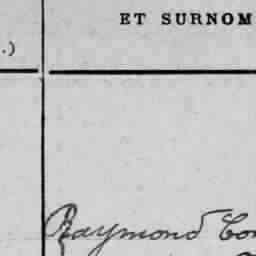 ET SURNOM
.)
Raymond Cor